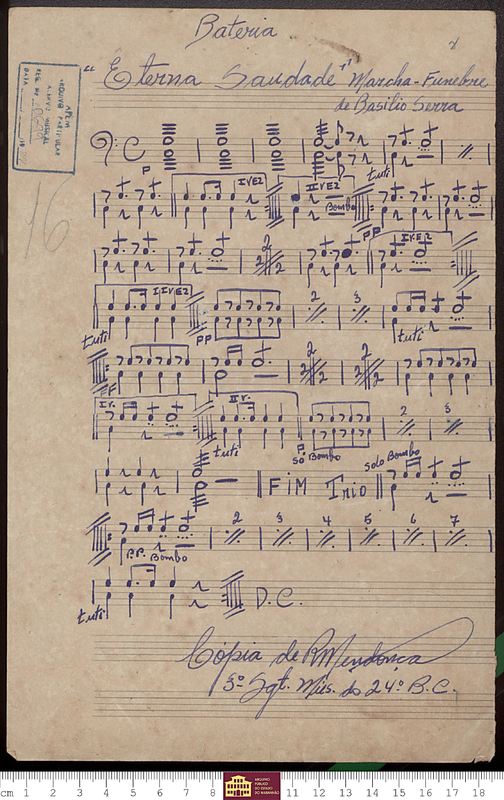 Bateria
"Eterna Saudade" Marcha-Funebre
de Basilio Serra
APEM
ARQUIVO PARTICULAR
REG. Nº
DATA
16
C
P
tutti
I VEZ
II VEZ
Bombo
PP
I VEZ
2
2
I VEZ
tuti
PP
2
3
tuti
FF
2
2
2
2
I V.
II V.
tuti
P.
só Bombo
2
3
FiM
Trio
solo Bombo
P.P. Bombo
2
3
4
5
6
7
tuti
D.C.
Cópia de RMendonca
3º Sgt. Mus. do 24º B.C.
cm 1 2 3 4 5 6 7 8
ARQUIVO
PÚBLICO
DO ESTADO
DO MARANHÃO
11 12 13 14 15 16 17 18